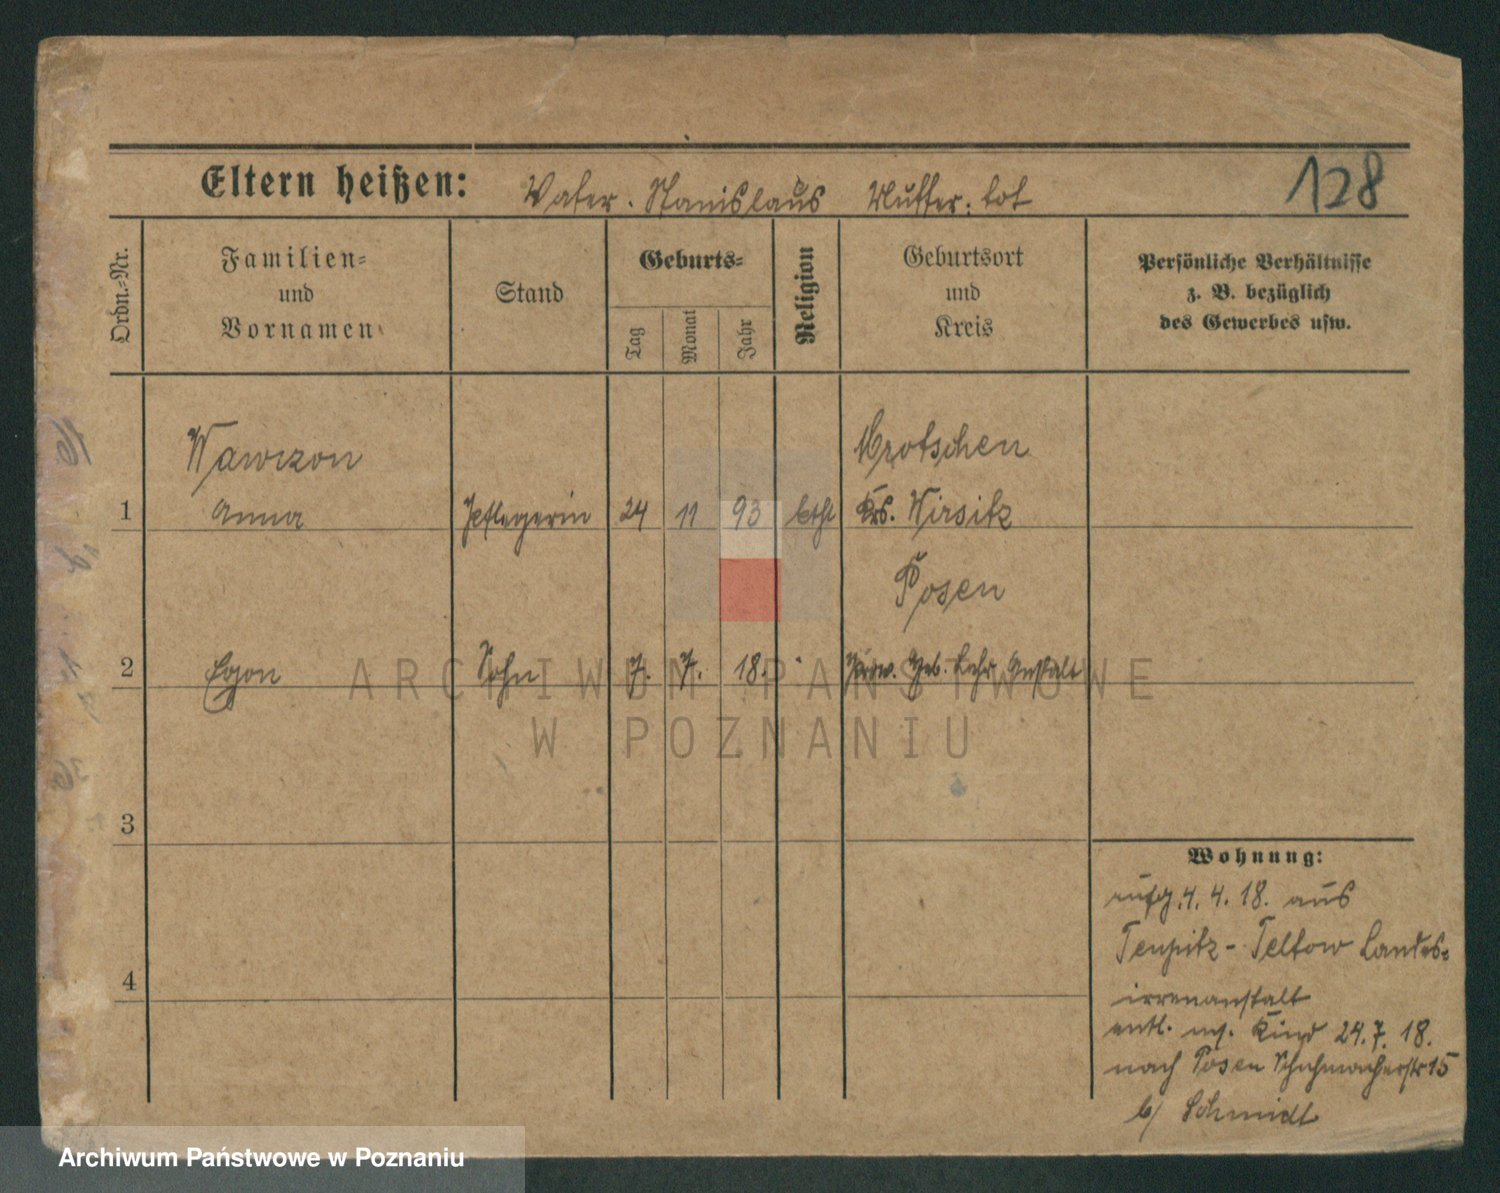 128
Eltern heißen: Vater. Stanislaus Mutter: tot
Ordn.-Nr.
Familien-
und
Vornamen
Stand
Geburts-
Tag
Monat
Jahr
Religion
Geburtsort
und
Kreis
Persönliche Verhältnisse
z. B. bezüglich
des Gewerbes usw.
Wawrzon
Mrotschen
1 Anna Pflegerin 24 11 93 kath Krs. Wirsitz
Posen
2 Egon Sohn 7. 7. 18. Prov. Heb. Lehr Anstalt
3
4
Wohnung:
aufg. 4. 4. 18. aus
Teupitz-Teltow Landes-
irrenanstalt
entl. m. Kind 24. 7. 18.
nach Posen Schuhmacherstr 15
b/ Schmidt
ARCHIWUM PAŃSTWOWE
W POZNANIU
Archiwum Państwowe w Poznaniu